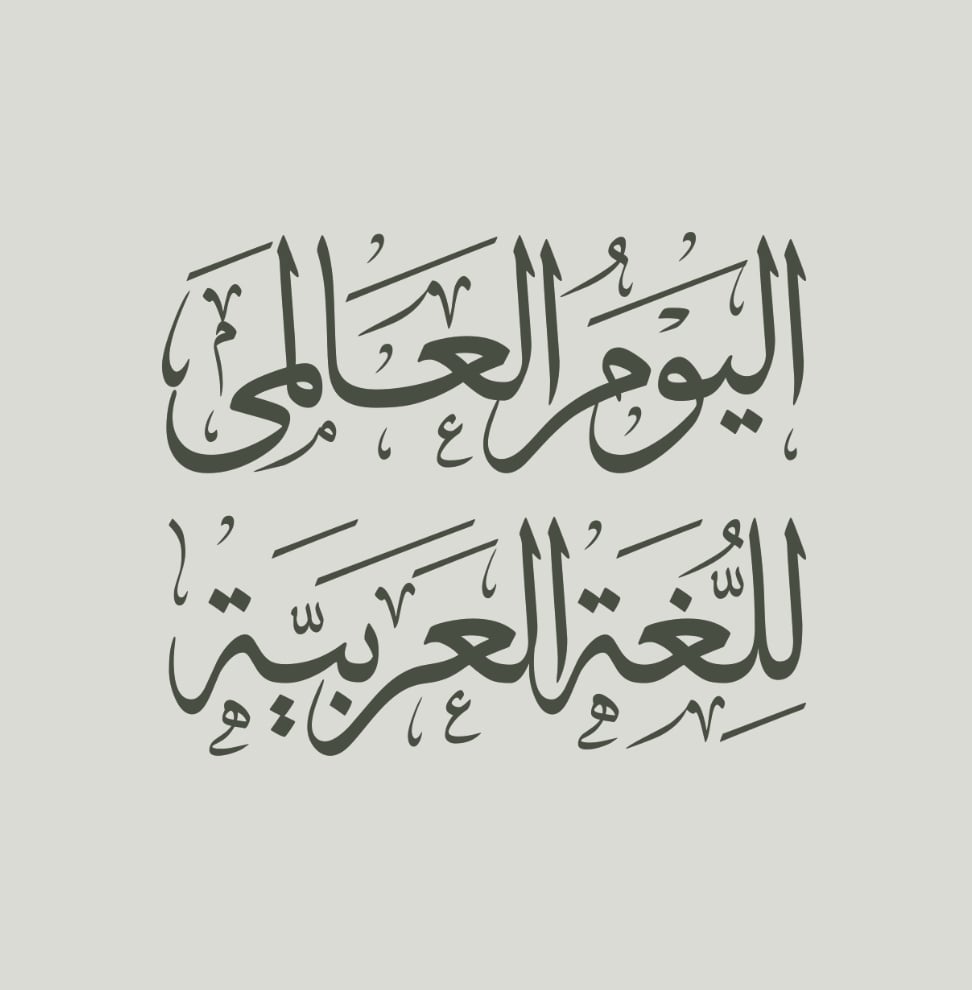 اليَومُ العَالمى
لِلُّغَة العَرَبيَّة